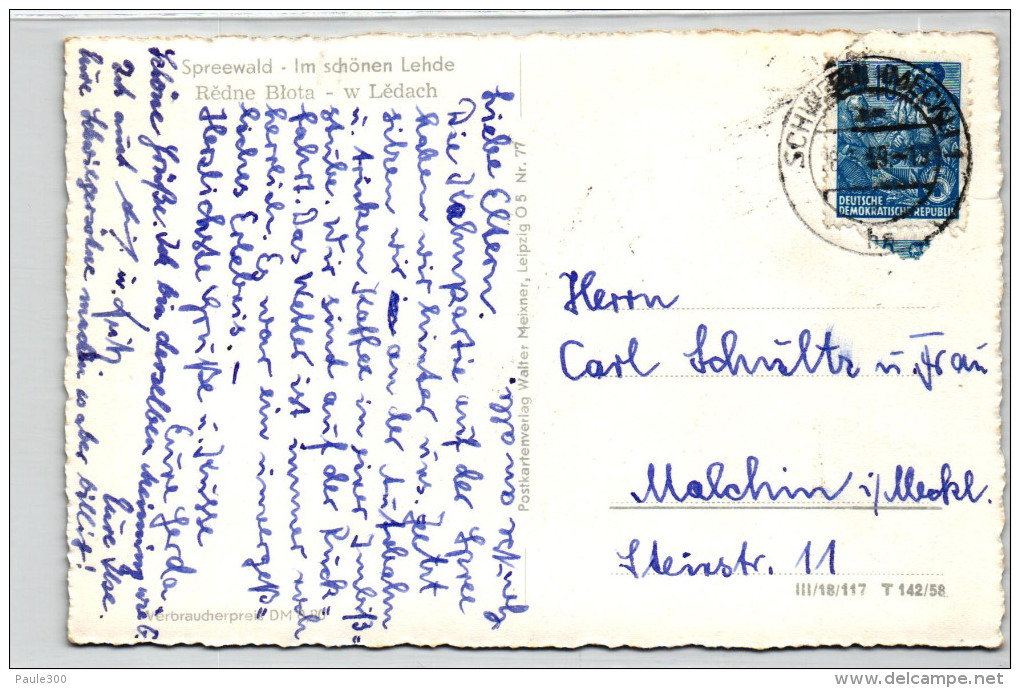 Spreewald - Im schönen Lehde
Rědne Błota - w Lědach
Liebe Eltern.
Die Kahnpartie auf der Spree
haben wir hinter uns. Jetzt
sitzen wir an der Autobahn
u. trinken Kaffee in einer Imbiß=
stube. Wir sind auf der Rück=
fahrt. Das Wetter ist immer noch
herrlich. Es war ein unvergeß=
liches Erlebnis. -
Herzlichste Grüße u. Küsse
Eure Gerda
Schöne Grüße. Ich bin derselben Meinung wie G.
Eure Ilse.
Ich auch
Eure Schwiegersohn
aber billig!
an alle.
Postkartenverlag Walter Meixner, Leipzig O 5 Nr. 77
Verbraucherpreis DM
SCHWERIN (MECKL) 1
DEUTSCHE
DEMOKRATISCHE REPUBLIK
10
Herrn
Carl Schultz u. Frau
Malchin i/Meckl.
Steinstr. 11
III/18/117 T 142/58
Paule300
delcampe.net